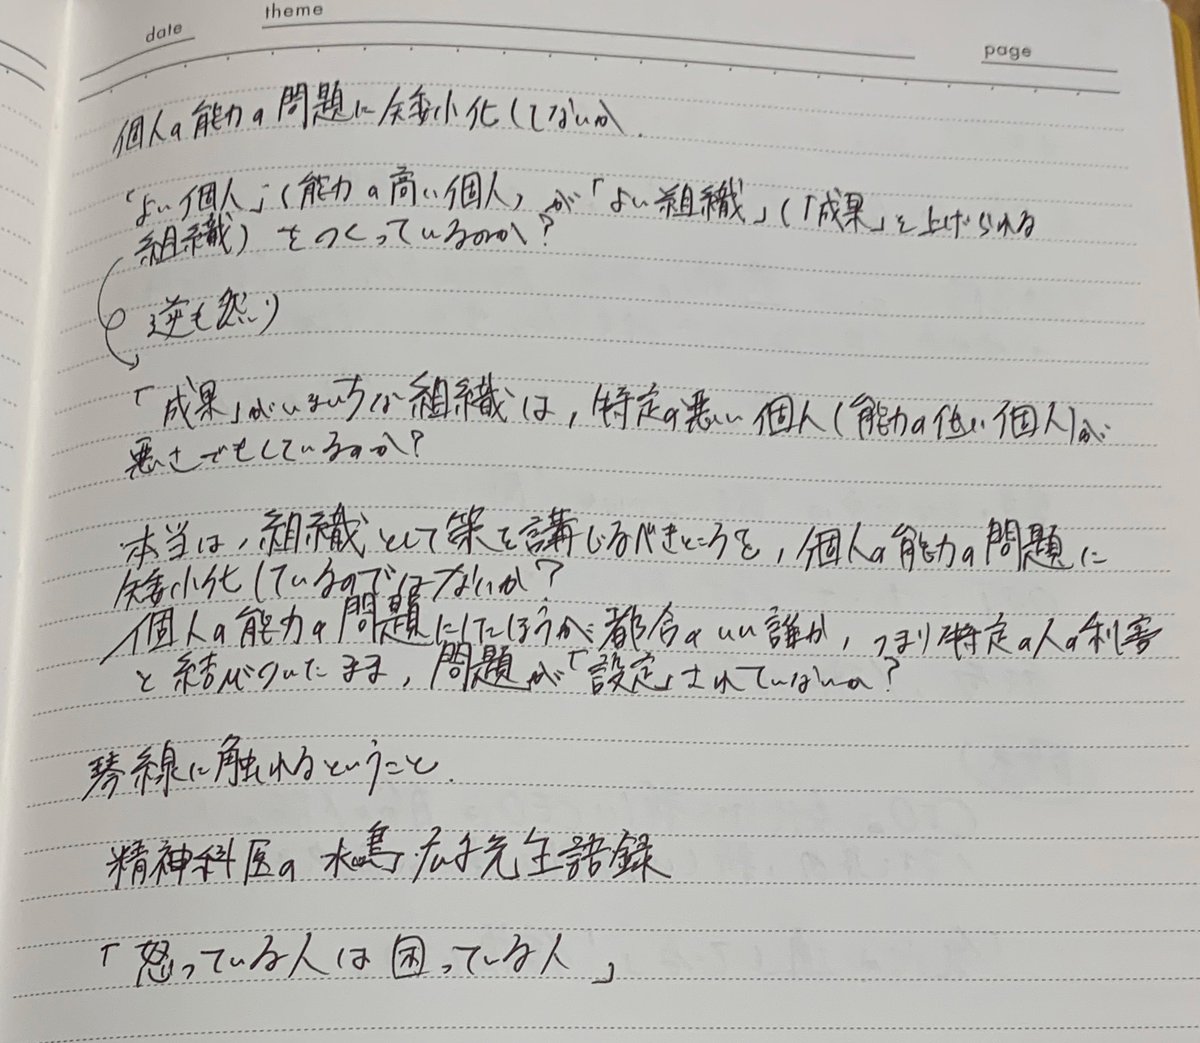 date
theme
page
個人の能力の問題に矮小化してないか.
「よい個人」(能力の高い個人)が「よい組織」(「成果」を上げられる
組織)をつくっているのか?
逆も然り
「成果」がいまいちな組織は,特定の悪い個人(能力の低い個人)が
悪さでもしているのか?
本当は,組織として策を講じるべきところを,個人の能力の問題に
矮小化しているのではないか?
個人の能力の問題にしたほうが都合のいい誰か,つまり特定の人の利害
と結びついたまま,問題が「設定」されていないか?
琴線に触れるということ.
精神科医の水島広子先生語録
「怒っている人は困っている人」